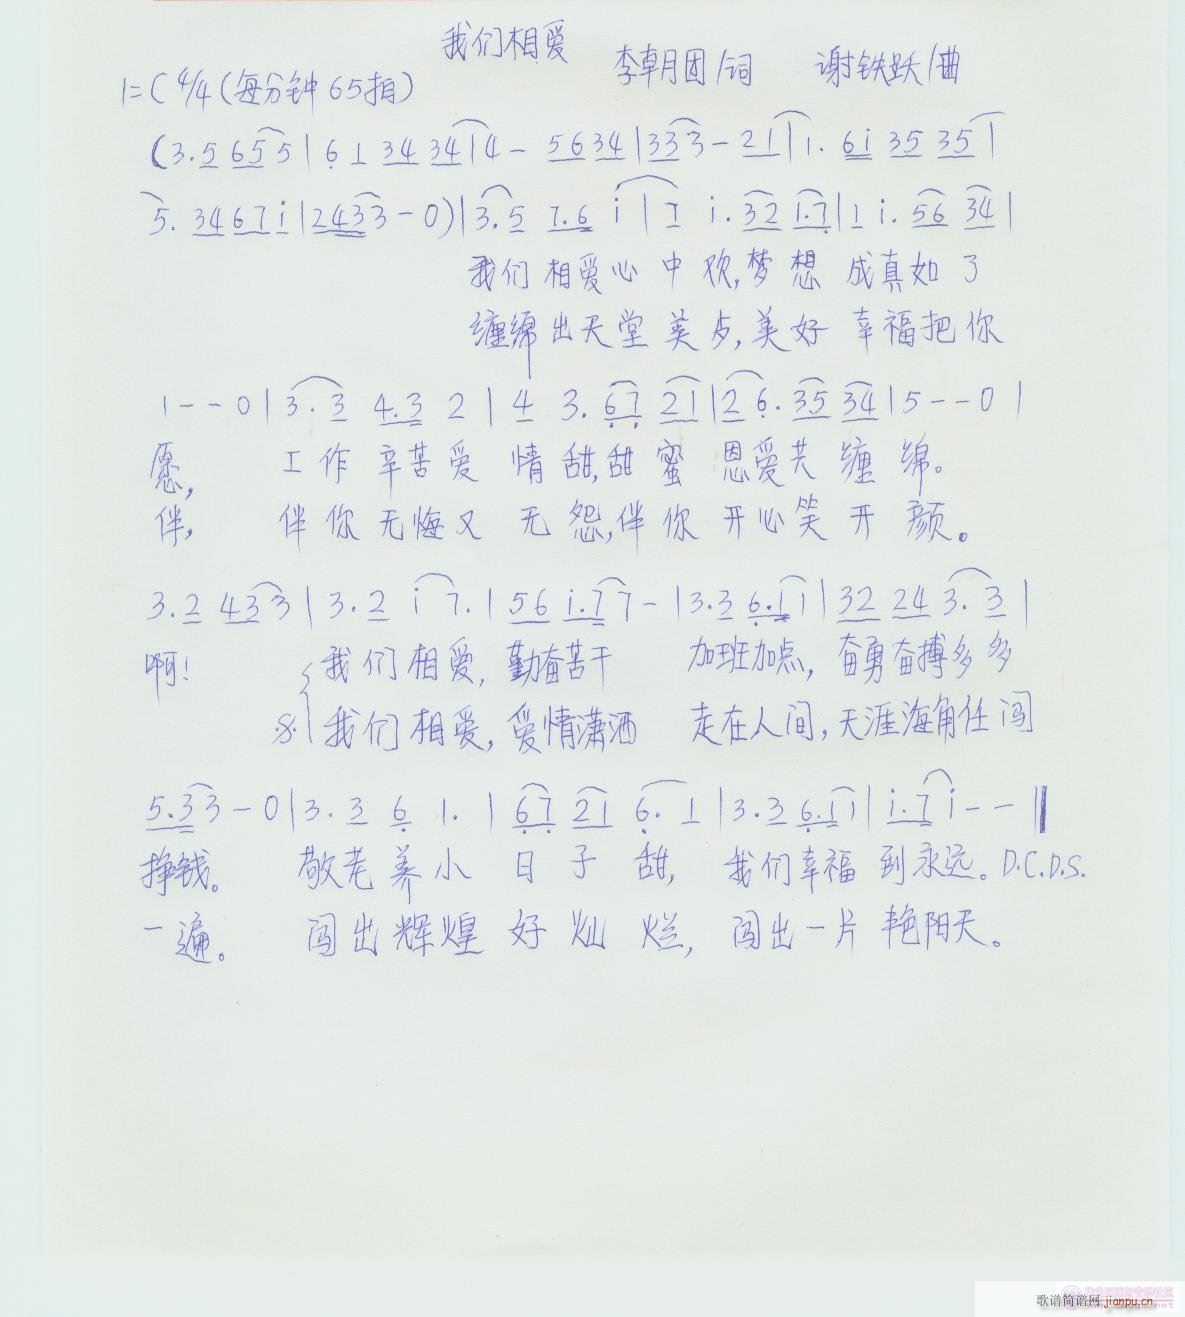 我们相爱
李朝团/词 谢铁跃/曲
1=C 4/4 (每分钟65拍)
(3.5 6 5 5 | 6 1 34 34 | 4 - 5634 | 333 - 21 | 1. 6i 35 35 |
5. 3467i | 2433 - 0) | 3.5 7.6 i | i i.32 i.7 | 1 i. 56 34 |
我们相爱心中欢,梦想 成真如了
缠绵出天堂美步,美好 幸福把你
1 - - 0 | 3.3 4.3 2 | 4 3. 67 21 | 2 6. 35 34 | 5 - - 0 |
愿, 工作辛苦爱 情甜,甜蜜 恩爱共缠绵。
伴, 伴你无悔又 无怨,伴你 开心笑开颜。
3.2 433 | 3.2 i 7. | 56 i.7 7 - | 3.3 6.1 1 | 32 24 3.3 |
啊! 我们相爱,勤奋苦干 加班加点,奋勇奋搏多多
我们相爱,爱情潇洒 走在人间,天涯海角任闯
5.33 - 0 | 3.3 6 1. | 67 21 6. 1 | 3.3 6.1 1 | i.7 i - - ‖
挣钱。 敬老养小 日子甜, 我们幸福到永远。D.C.D.S.
一遍。 闯出辉煌 好灿烂, 闯出一片艳阳天。
歌谱简谱网 jianpu.cn